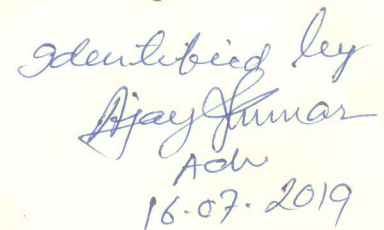 Identified by
Ajay Kumar
Adv
16.07.2019